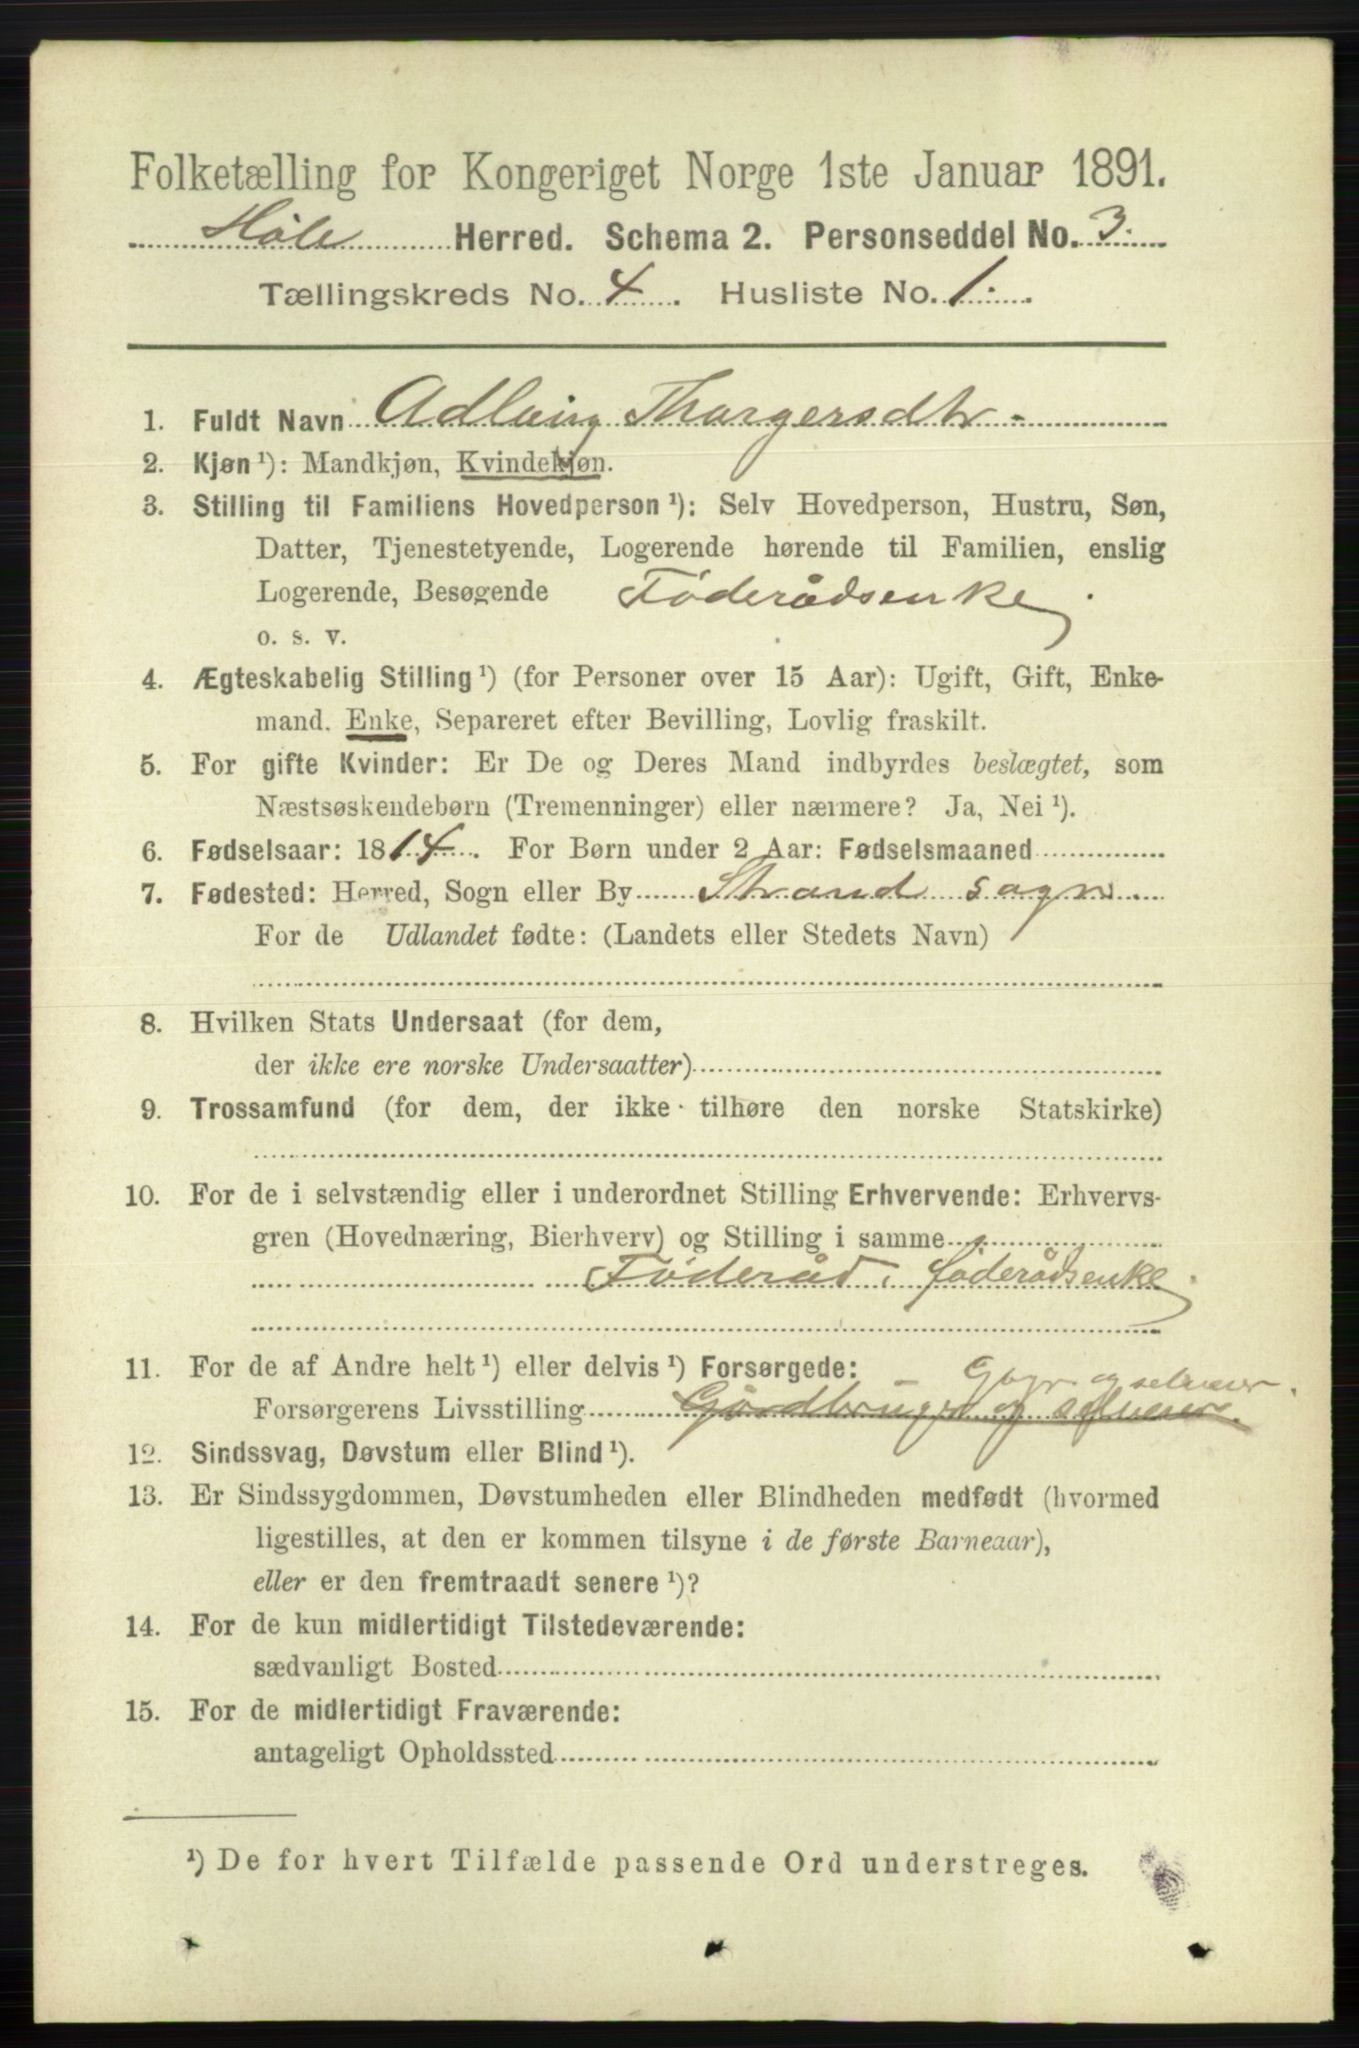 Folketælling for Kongeriget Norge 1ste Januar 1891.
Høle Herred. Schema 2. Personseddel No. 3.
Tællingskreds No. 4. Husliste No. 1.
1. Fuldt Navn Adluing Thorgersdtr
2. Kjøn ¹): Mandkjøn, Kvindekjøn.
3. Stilling til Familiens Hovedperson ¹): Selv Hovedperson, Hustru, Søn,
Datter, Tjenestetyende, Logerende hørende til Familien, enslig
Logerende, Besøgende Føderådsenke.
o. s. v.
4. Ægteskabelig Stilling ¹) (for Personer over 15 Aar): Ugift, Gift, Enke-
mand. Enke, Separeret efter Bevilling, Lovlig fraskilt.
5. For gifte Kvinder: Er De og Deres Mand indbyrdes beslægtet, som
Næstsøskendebørn (Tremenninger) eller nærmere? Ja, Nei ¹).
6. Fødselsaar: 1814. For Børn under 2 Aar: Fødselsmaaned
7. Fødested: Herred, Sogn eller By Strand sogn.
For de Udlandet fødte: (Landets eller Stedets Navn)
8. Hvilken Stats Undersaat (for dem,
der ikke ere norske Undersaatter)
9. Trossamfund (for dem, der ikke tilhøre den norske Statskirke)
10. For de i selvstændig eller i underordnet Stilling Erhvervende: Erhvervs-
gren (Hovednæring, Bierhverv) og Stilling i samme
Føderåd, føderådsenke.
11. For de af Andre helt ¹) eller delvis ¹) Forsørgede: Gbgr. og selveier.
Forsørgerens Livsstilling Gårdbruger og selveier.
12. Sindssvag, Døvstum eller Blind ¹).
13. Er Sindssygdommen, Døvstumheden eller Blindheden medfødt (hvormed
ligestilles, at den er kommen tilsyne i de første Barneaar),
eller er den fremtraadt senere ¹)?
14. For de kun midlertidigt Tilstedeværende:
sædvanligt Bosted
15. For de midlertidigt Fraværende:
antageligt Opholdssted
¹) De for hvert Tilfælde passende Ord understreges.